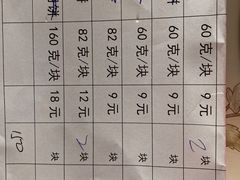 60克/块 9元 2块
60克/块 9元 块
60克/块 9元 块
82克/块 9元 块
82克/块 12元 2块
160克/块 18元 块